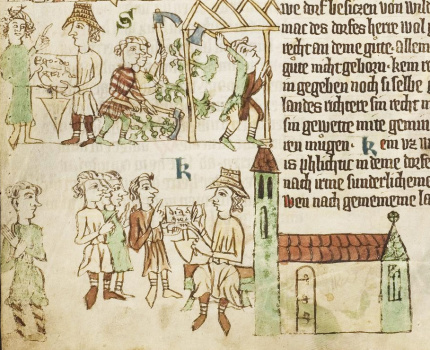 we dorf besiczen von wild
mac des dorfes herre wol
recht an deme gute · allem
gute nicht geborn · kein
in gegeben noch si selbe
landes richtere sin recht
sin gewette mite
ren mugen · K ein uz
is phlichtic in deme dorfe
nach irme sunderlicheme
wen nach gemeineme la
Ego dei
K